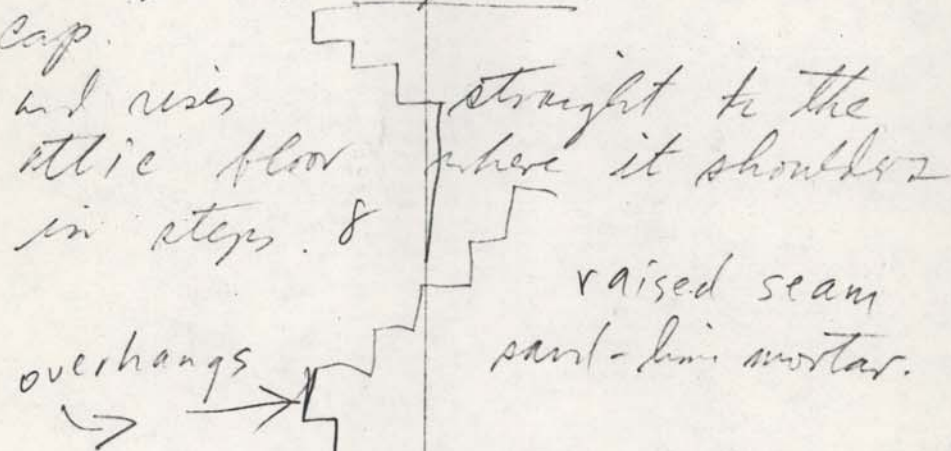 cap.
and rises straight to the
attic floor where it shoulders
in steps. 8
raised seam
sand-lim mortar.
overhangs